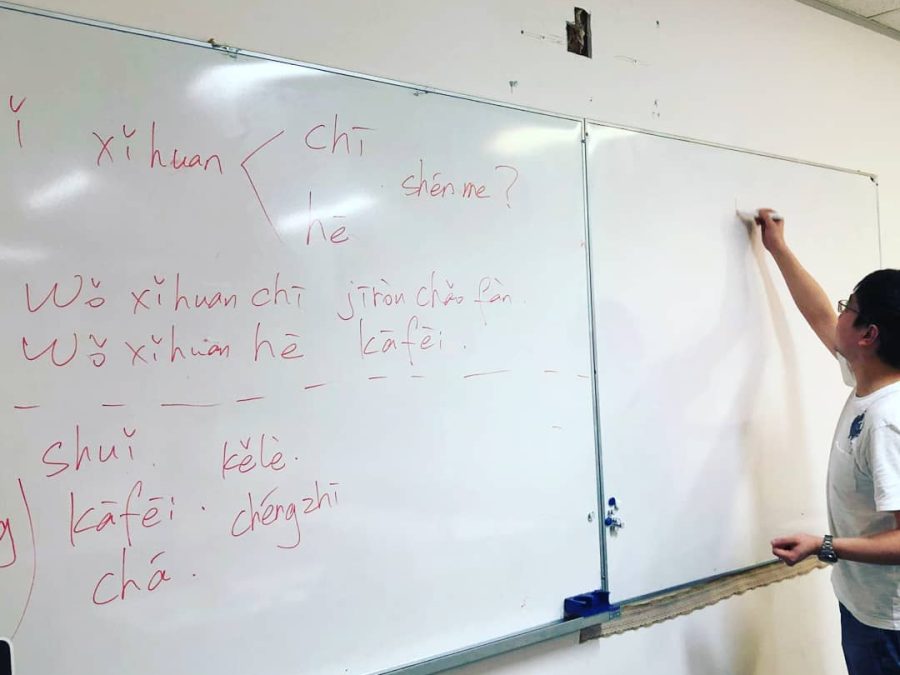 ǐ xǐhuan chī
hē shénme?
Wǒ xǐhuan chī jīròu chǎo fàn.
Wǒ xǐhuan hē kāfēi.
shuǐ. kělè.
g) kāfēi. chéngzhī
chá.